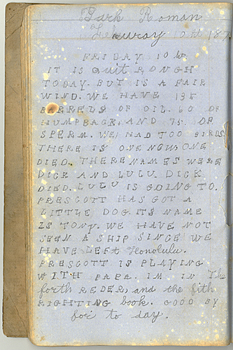 Bark Roman
FRIDAY 10th
IT IS QUIT ROUGH
TODAY. BUT IS A FAIR
WIND. WE HAVE 135
BARRELS OF OIL. 60 OF
HUMPBACK. AND 75 OF
SPERM. WE HAD TOO BIRDS
THERE IS ONE NOW ONE
DIED. THERE NAMES WERE
DICK AND LULU. DICK.
DIED. LULU IS GOING TO.
PRESCOTT HAS GOT A
LITTLE DOG ITS NAME
IS TONY. WE HAVE NOT
SEEN A SHIP SINCE WE
HAVE LEFT Honolulu.
PRESCOTT IS PLAYING
WITH PAPA. IM IN The
forth REDER, and the fith
RIGHTING book. GOOD BY
for to day.